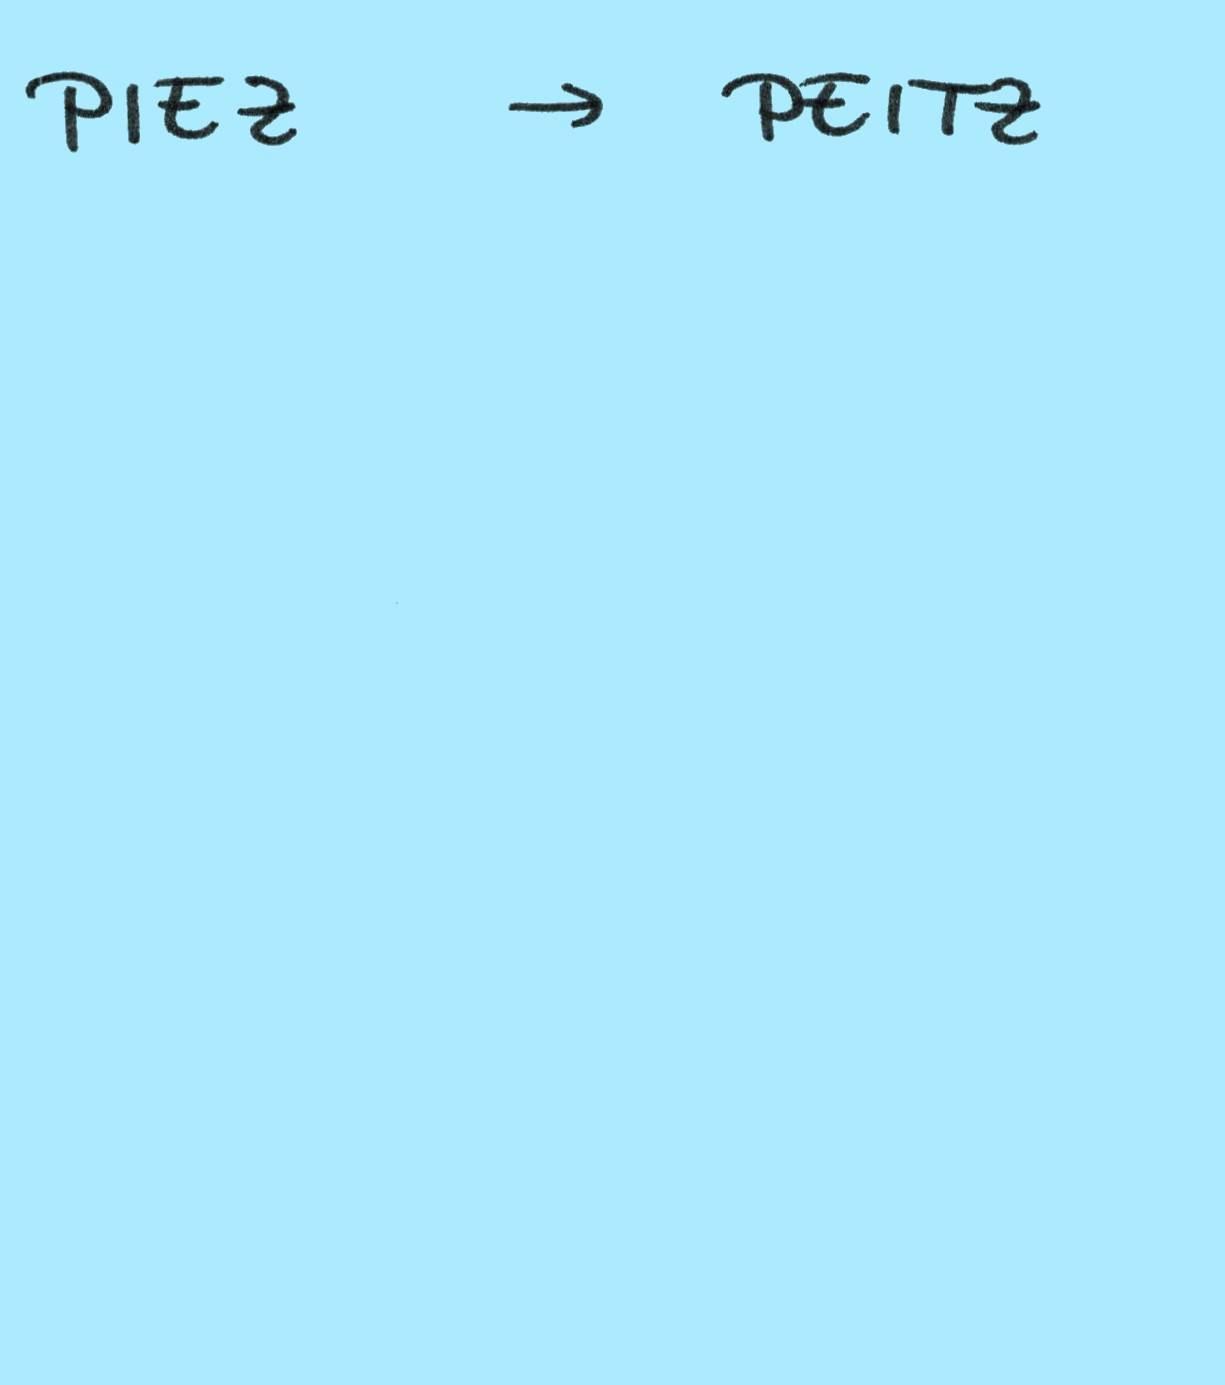 PIEZ → PEITZ